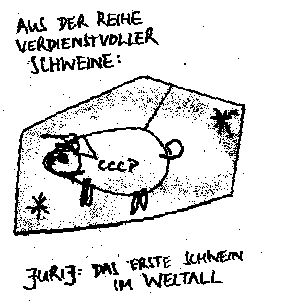 AUS DER REIHE
VERDIENSTVOLLER
SCHWEINE:
CCCP
JURIJ: DAS ERSTE SCHWEIN
IM WELTALL